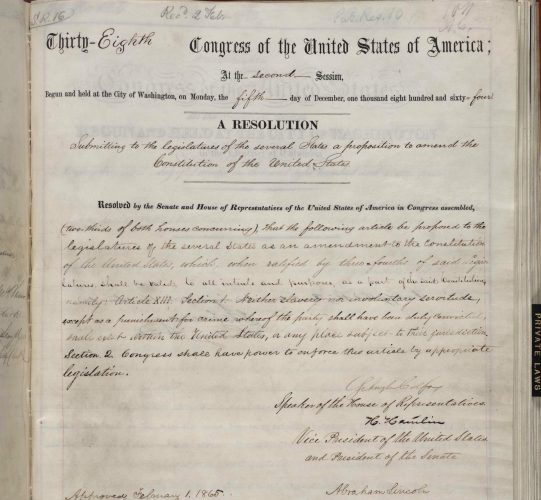 S.R. 16
Rec'd. 2 Feb.
Pub. Res. 10
Thirty-Eighth Congress of the United States of America;
At the second Session,
Begun and held at the City of Washington, on Monday, the fifth day of December, one thousand eight hundred and sixty-four
A RESOLUTION
Submitting to the legislatures of the several States a proposition to amend the
Constitution of the United States.
Resolved by the Senate and House of Representatives of the United States of America in Congress assembled,
(two-thirds of both houses concurring), that the following article be proposed to the
legislatures of the several States as an amendment to the Constitution
of the United States, which, when ratified by three-fourths of said Legis-
latures shall be valid, to all intents and purposes, as a part of the said Constitution,
namely: Article XIII. Section 1. Neither slavery nor involuntary servitude,
except as a punishment for crime whereof the party shall have been duly convicted,
shall exist within the United States, or any place subject to their jurisdiction.
Section 2. Congress shall have power to enforce this article by appropriate
legislation.
Schuyler Colfax
Speaker of the House of Representatives.
H. Hamlin
Vice President of the United States
and President of the Senate
Approved February 1, 1865.
Abraham Lincoln
PRIVATE LAWS